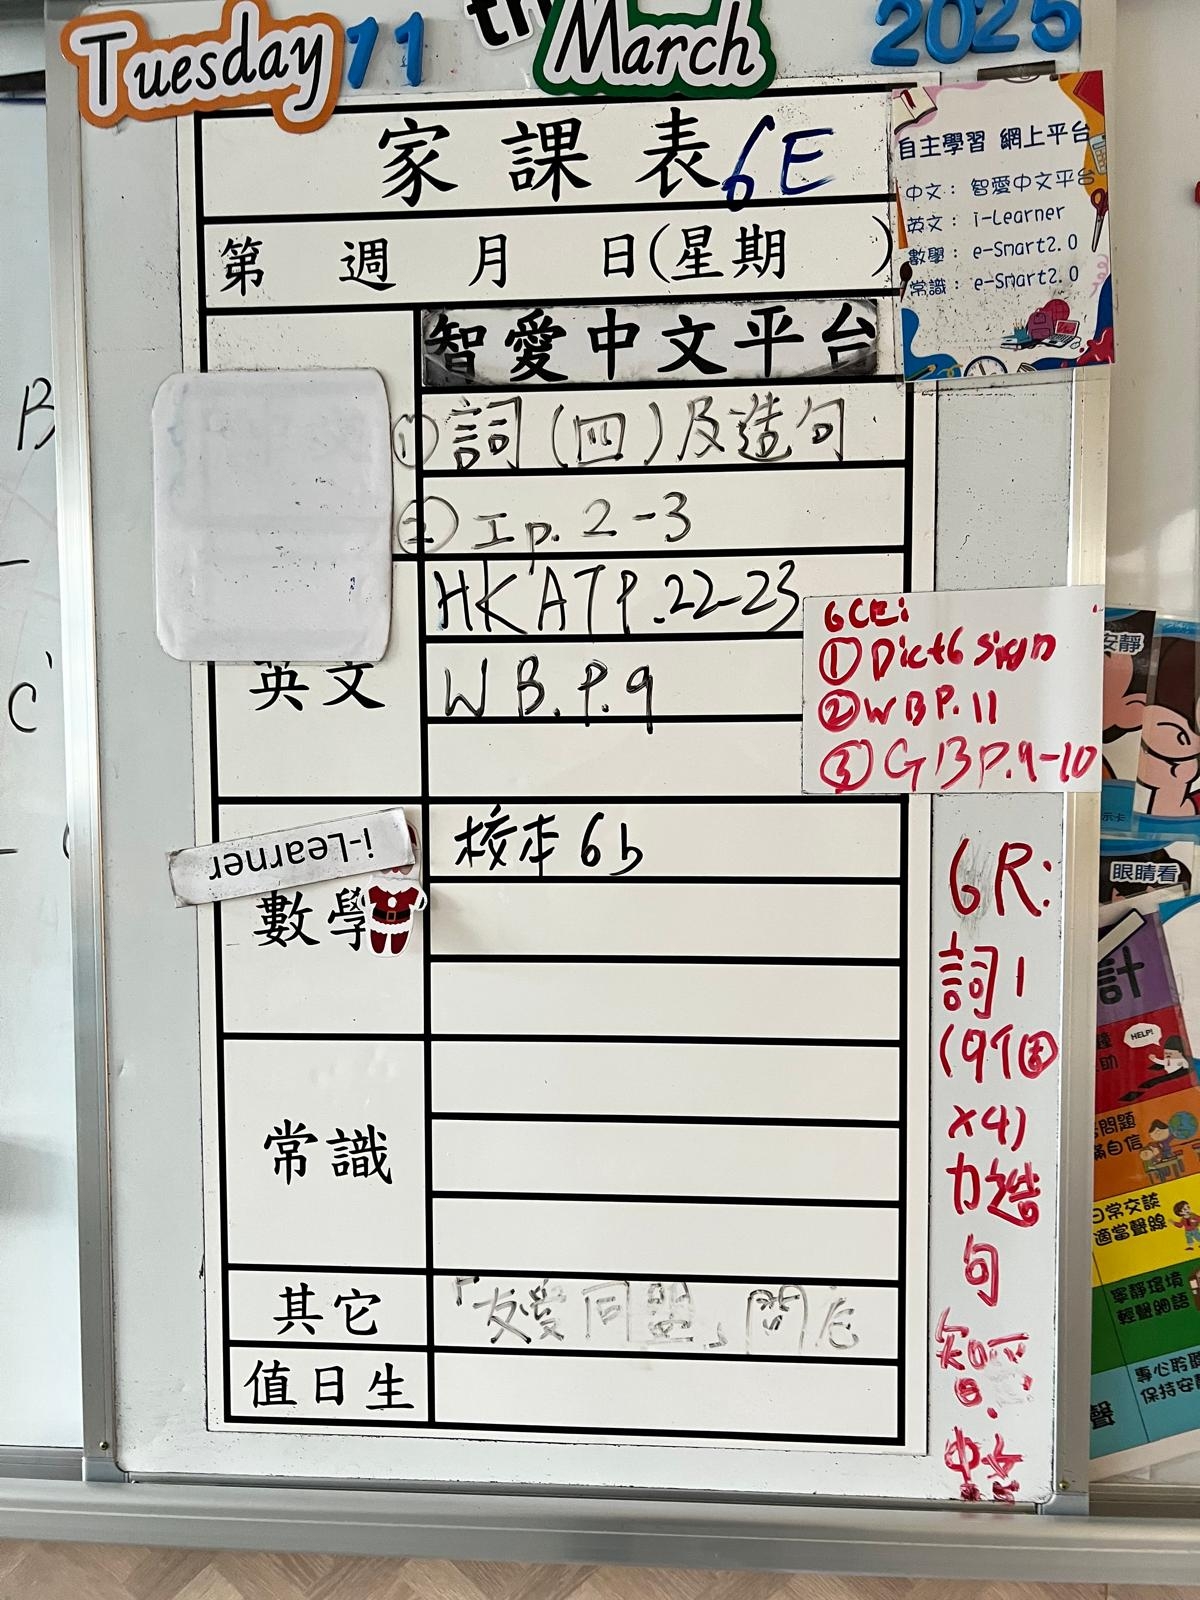 Tuesday 11 th March 2025
家課表 6E
第 週 月 日(星期 )
自主學習 網上平台
中文： 智愛中文平台
英文： i-Learner
數學： e-Smart2.0
常識： e-Smart2.0
智愛中文平台
① 詞(四)及造句
② 工p. 2-3
英文
HKAT P.22-23
W B.P.9
6CE:
① Dict6 sign
② WB P.11
③ GB P.9-10
i-Learner
數學
校本 6b
常識
其它
「友愛同盟」
值日生
6R:
詞1
(9個
x4)
造
句
中
B
C
安靜
示卡
眼睛看
計
HELP!
助
問題
自信
日常交談
適當聲線
寧靜環境
輕聲細語
專心聆
保持安
聲